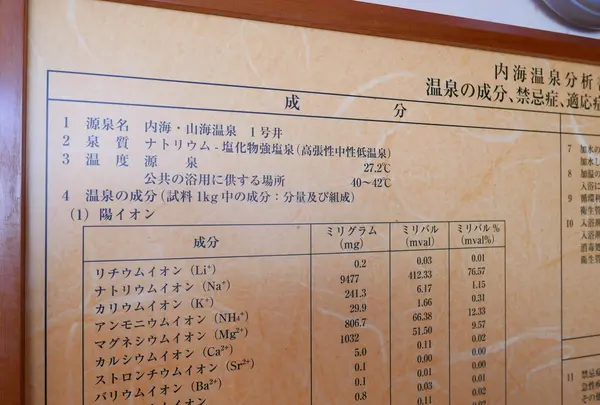 内海温泉分析
温泉の成分、禁忌症、適応症
成 分
1 源泉名 内海・山海温泉 1号井
2 泉質 ナトリウム-塩化物強塩泉(高張性中性低温泉)
3 温度 源泉 27.2℃
公共の浴用に供する場所 40〜42℃
4 温泉の成分(試料1kg中の成分:分量及び組成)
(1) 陽イオン
成分 ミリグラム(mg) ミリバル(mval) ミリバル%(mval%)
リチウムイオン(Li⁺) 0.2 0.03 0.01
ナトリウムイオン(Na⁺) 9477 412.33 76.57
カリウムイオン(K⁺) 241.3 6.17 1.15
アンモニウムイオン(NH₄⁺) 29.9 1.66 0.31
マグネシウムイオン(Mg²⁺) 806.7 66.38 12.33
カルシウムイオン(Ca²⁺) 1032 51.50 9.57
ストロンチウムイオン(Sr²⁺) 5.0 0.11 0.02
バリウムイオン(Ba²⁺) 0.1 0.01
イオン 0.1 0.01
0.8 0.03
0.11 0.02
7 加水の
8 加温の
入浴に
9 循環
衛生管
10 入浴剤
入浴剤
消毒処
衛生管
11 禁忌症
急性疾
その他